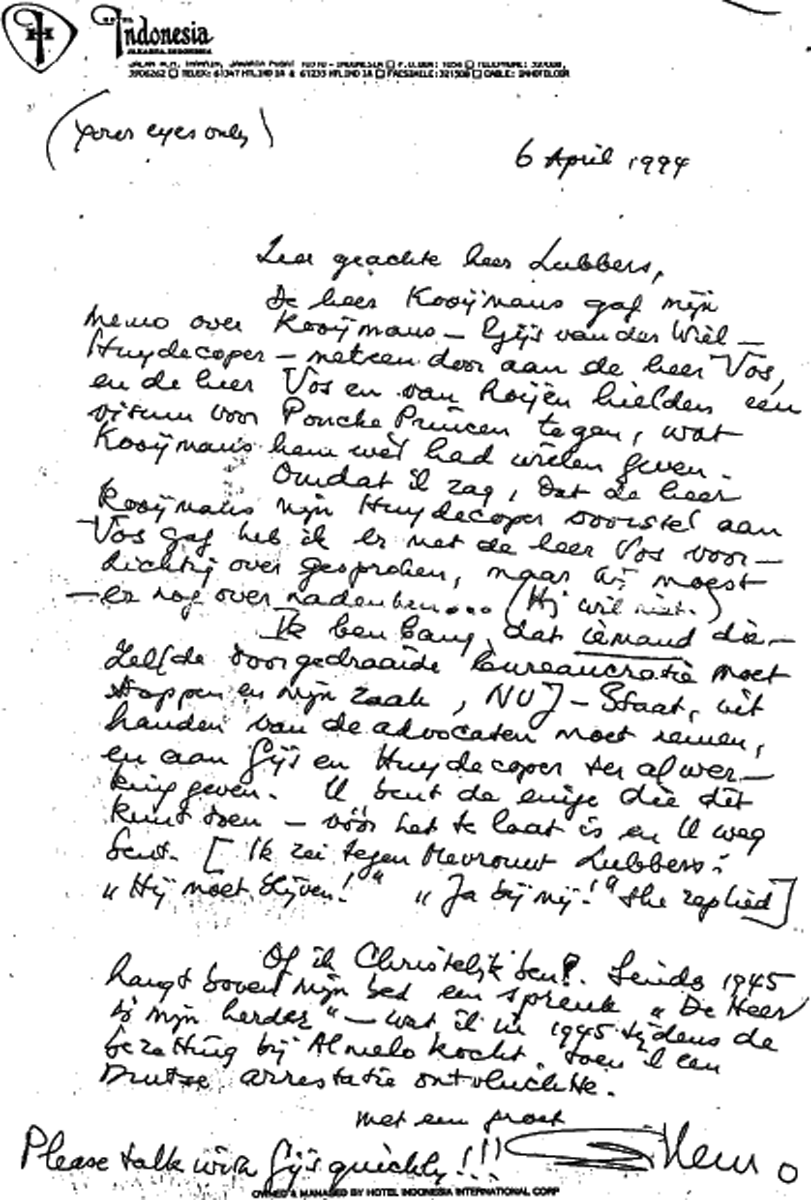 HOTEL
Indonesia
JAKARTA, INDONESIA
JALAN M.H. THAMRIN, JAKARTA PUSAT 10310 - INDONESIA □ P.O. BOX: 1054 □ TELEPHONE:
3906262 □ TELEX: 61347 HTLIND IA & 61233 HTLIND IA □ FACSIMILE: 321508 □ CABLE: INHOTELCOR
(your eyes only)
6 April 1994
Zeer geachte heer Lubbers,
De heer Kooÿmans gaf mÿn
memo over Kooÿmans — Gÿs van der Wiel —
Huydecoper — meteen door aan de heer Vos,
en de heer Vos en van Roÿen hielden een
visum voor Poncke Princen tegen, wat
Kooÿmans hem wel had willen geven.
Omdat ik zag, dat de heer
Kooÿmans mÿn Huydecoper voorstel aan
Vos gaf heb ik er met de heer Vos voor—
zichtig over gesproken, maar hÿ moest
— er nog over nadenken... (Hÿ wil niet.)
Ik ben bang, dat iemand die—
zelfde doorgedraaide bureaucratie moet
stoppen en mÿn zaak, NUJ — Staat, uit
handen van de advocaten moet nemen,
en aan Gÿs en Huydecoper ter afwer—
king geven. U bent de enige die dit
kunt doen — vóór het te laat is en U weg
bent. [Ik zei tegen Mevrouw Lubbers:
„Hÿ moet blÿven!" „Ja bÿ mÿ!" She replied]
Of ik Christelÿk ben?. Sinds 1945
hangt boven mÿn bed een spreuk „De Heer
is mÿn herder" — wat ik in 1945 tÿdens de
bezetting bÿ Almelo kocht, toen ik een
Duitse arrestatie ontvluchtte.
met een groet
Please talk with Gÿs quickly!!!
OWNED & MANAGED BY HOTEL INDONESIA INTERNATIONAL CORP